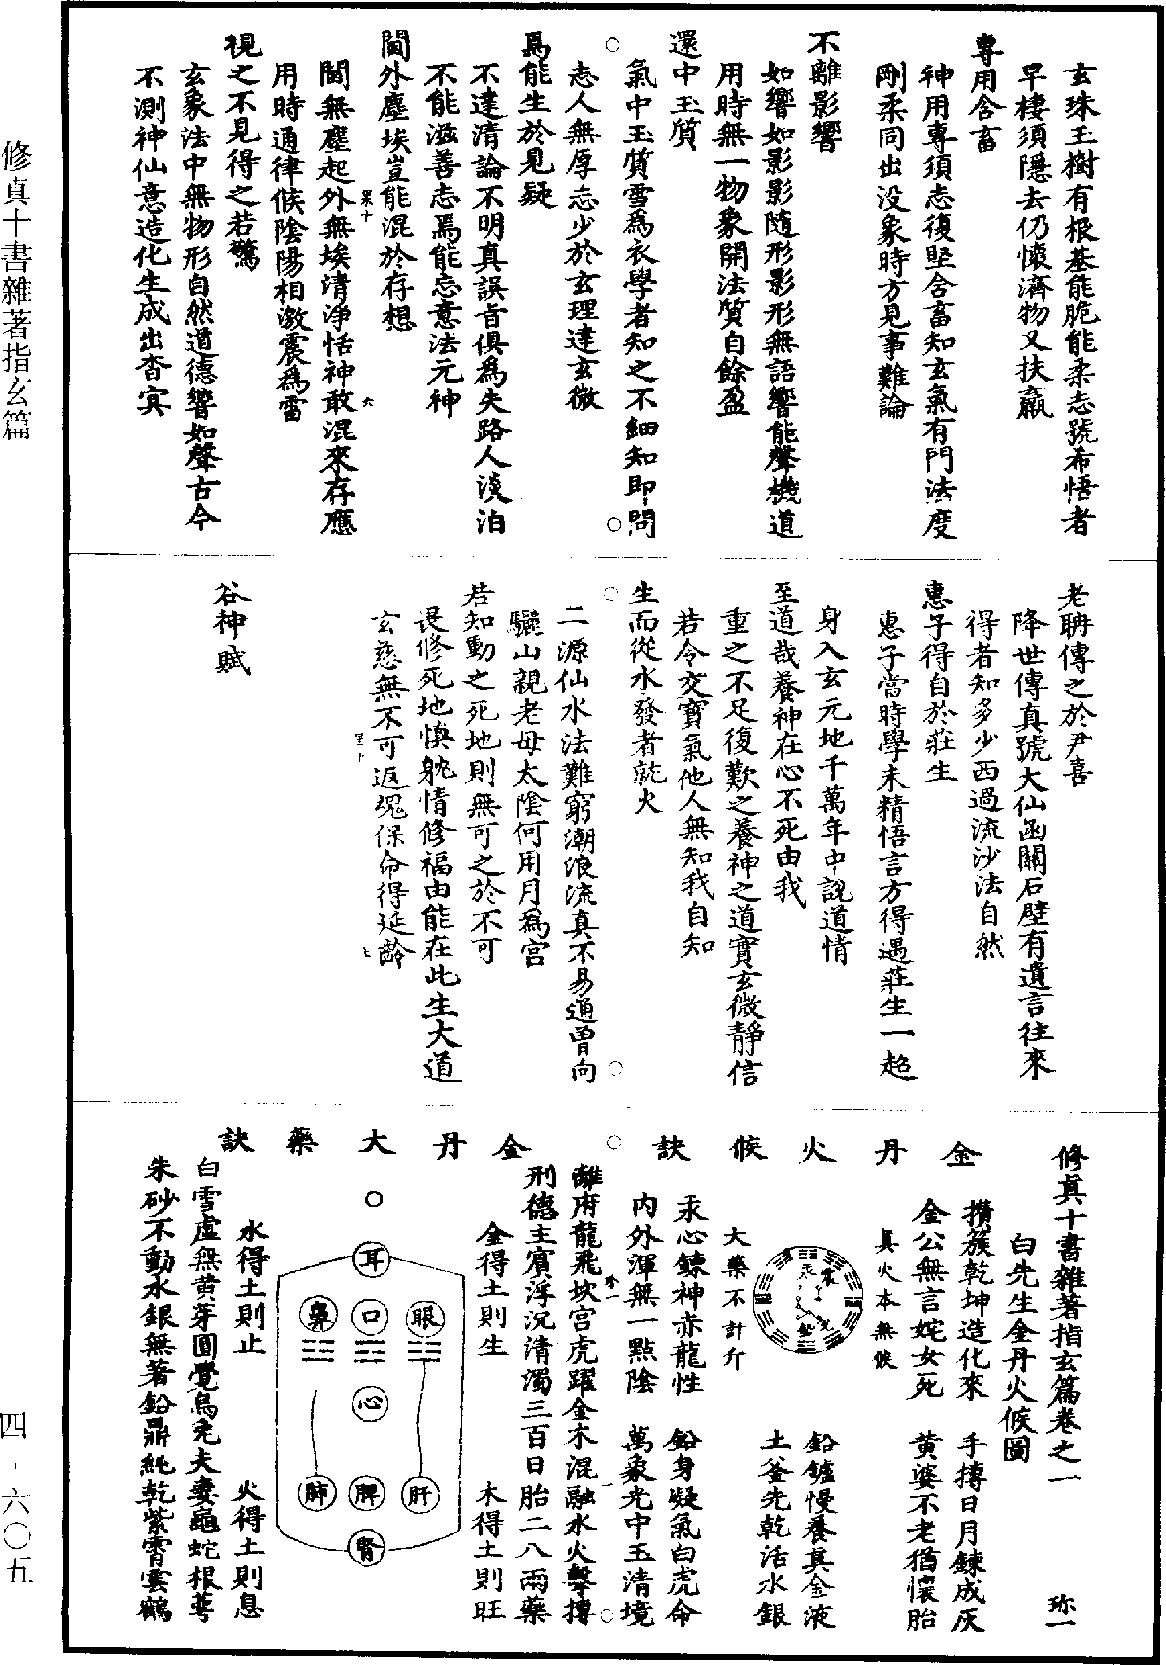 修真十書雜著指玄篇
四-六〇五
玄珠玉樹有根基能脆能柔志號希悟者
早棲須隱去仍懷濟物又扶羸
專用含畜
神用專須志復堅含畜知玄氣有門法度
剛柔同出没象時方見事難論
不離影響
如響如影影隨形影形無語響能聲機道
用時無一物象開法質自餘盈
還中玉質
氣中玉質雪為衣學者知之不細知即問
志人無厚志少於玄理達玄微
焉能生於見疑
不達清論不明真誤旨俱為失路人淡泊
不能滋善志焉能忘意法元神
閫外塵埃豈能混於存想
閫無塵起外無埃清淨恬神敢混來存應
用時通律候陰陽相激震為雷
視之不見得之若驚
玄象法中無物形自然道德響如聲古今
不測神仙意造化生成出杳冥
老聃傳之於尹喜
降世傳真號大仙函關石壁有遺言往來
得者知多少西過流沙法自然
惠子得自於莊生
惠子當時學未精悟言方得遇莊生一超
身入玄元地千萬年中說道情
至道哉養神在心不死由我
重之不足復歎之養神之道實玄微靜信
若令交寶氣他人無知我自知
生而從水發者就火
二源仙水法難窮潮浪流真不易通曾向
驪山親老母太陰何用月為宮
若知動之死地則無可之於不可
畏修死地慎躭情修福由能在此生大道
玄慈無不可返魂保命得延齡
谷神賦
修真十書雜著指玄篇卷之一 珎一
白先生金丹火候圖
金丹火候訣
攢簇乾坤造化來 手摶日月鍊成灰
金公無言姹女死 黃婆不老猶懷胎
真火本無候
大藥不計斤
鉛鑪慢養真金液
土釜先乾活水銀
汞心鍊神赤龍性 鉛身凝氣白虎命
內外渾無一點陰 萬象光中玉清境
離府龍飛坎宮虎躍金木混融水火擊摶
刑德主賓浮沉清濁三百日胎二八兩藥
金丹大藥訣
金得土則生 木得土則旺
耳
眼 口 鼻
心
肝 脾 肺
腎
水得土則止 火得土則息
白雪虛無黃芽圓覺烏兔夫妻龜蛇根萼
朱砂不動水銀無著鉛鼎純乾紫霄雲鶴